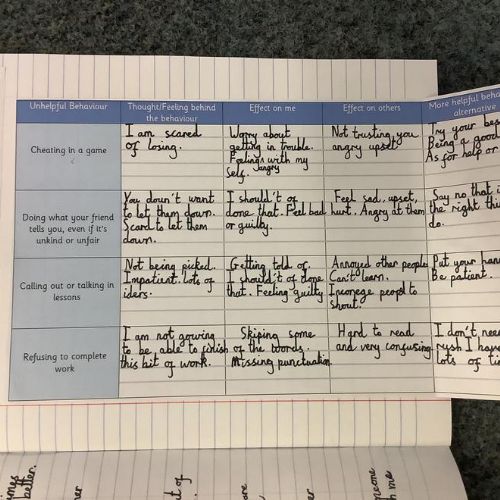 Unhelpful Behaviour
Thought/Feeling behind
the behaviour
Effect on me
Effect on others
More helpful beha
alternative
Cheating in a game
I am scared
of losing.
Worry about
getting in trouble.
Feelings with my
self. angry
Not trusting you
angry upset
Try your bes
Being a good
As for help or
Doing what your friend
tells you, even if it's
unkind or unfair
You doun't want
to let them down.
Scard to let them
down.
I should't of
done that. Feel bad
or guilty.
Feel sad, upset,
hurt. Angry at them
Say no that i
the right thi
do.
Calling out or talking in
lessons
Not being picked.
Impatient. lots of
iders.
Getting told of.
I should't of done
that. Feeling guilty
Annoyed other people
Can't learn.
Incorege peopl to
shout.
Put your han
Be patient.
Refusing to complete
work
I am not gowing
to be able to finish
this bit of work.
Skiping some
of the words.
Missing punctuation
Hard to read
and very confusing
I don't nee
rush I have
lots of ti
better.
out of